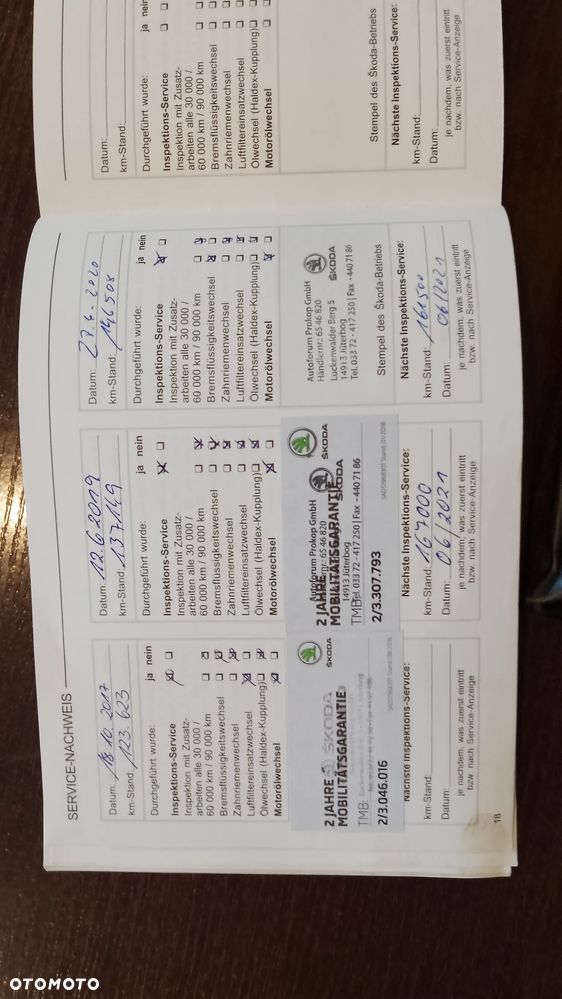 SERVICE-NACHWEIS
Datum: 18.10.2017
km-Stand: 123.623
Durchgeführt wurde: ja nein
Inspektions-Service
Inspektion mit Zusatz-
arbeiten alle 30 000 /
60 000 km / 90 000 km
Bremsflüssigkeitswechsel
Zahnriemenwechsel
Luftfiltereinsatzwechsel
Ölwechsel (Haldex-Kupplung)
Motorölwechsel
ŠKODA
2 JAHRE
MOBILITÄTSGARANTIE
TMB:
2/3.046.016
Nächste Inspektions-Service:
km-Stand:
Datum:
je nachdem, was zuerst eintritt
bzw. nach Service-Anzeige
18
Datum: 12.6.2019
km-Stand: 137149
Durchgeführt wurde: ja nein
Inspektions-Service
Inspektion mit Zusatz-
arbeiten alle 30 000 /
60 000 km / 90 000 km
Bremsflüssigkeitswechsel
Zahnriemenwechsel
Luftfiltereinsatzwechsel
Ölwechsel (Haldex-Kupplung)
Motorölwechsel
ŠKODA
Autoforum Prokop GmbH
65 46 820
2 JAHRE
MOBILITÄTSGARANTIE
ŠKODA
14913 Jüterbog
TMB: Tel. 033 72 - 417 250 | Fax - 440 71 86
2/3.307.793
Nächste Inspektions-Service:
km-Stand: 167000
Datum: 06/2021
je nachdem, was zuerst eintritt
bzw. nach Service-Anzeige
Datum: 27.4.2020
km-Stand: 146508
Durchgeführt wurde: ja nein
Inspektions-Service
Inspektion mit Zusatz-
arbeiten alle 30 000 /
60 000 km / 90 000 km
Bremsflüssigkeitswechsel
Zahnriemenwechsel
Luftfiltereinsatzwechsel
Ölwechsel (Haldex-Kupplung)
Motorölwechsel
Autoforum Prokop GmbH
Händlernr.: 65 46 820
ŠKODA
Luckenwalder Berg 5
14913 Jüterbog
Tel. 033 72 - 417 250 | Fax - 440 71 86
Stempel des Škoda-Betriebs
Nächste Inspektions-Service:
km-Stand: 161500
Datum: 06/2021
je nachdem, was zuerst eintritt
bzw. nach Service-Anzeige
Datum:
km-Stand:
Durchgeführt wurde: ja nein
Inspektions-Service
Inspektion mit Zusatz-
arbeiten alle 30 000 /
60 000 km / 90 000 km
Bremsflüssigkeitswechsel
Zahnriemenwechsel
Luftfiltereinsatzwechsel
Ölwechsel (Haldex-Kupplung)
Motorölwechsel
Stempel des Škoda-Betriebs
Nächste Inspektions-Service:
km-Stand:
Datum:
je nachdem, was zuerst eintritt
bzw. nach Service-Anzeige
OTOMOTO